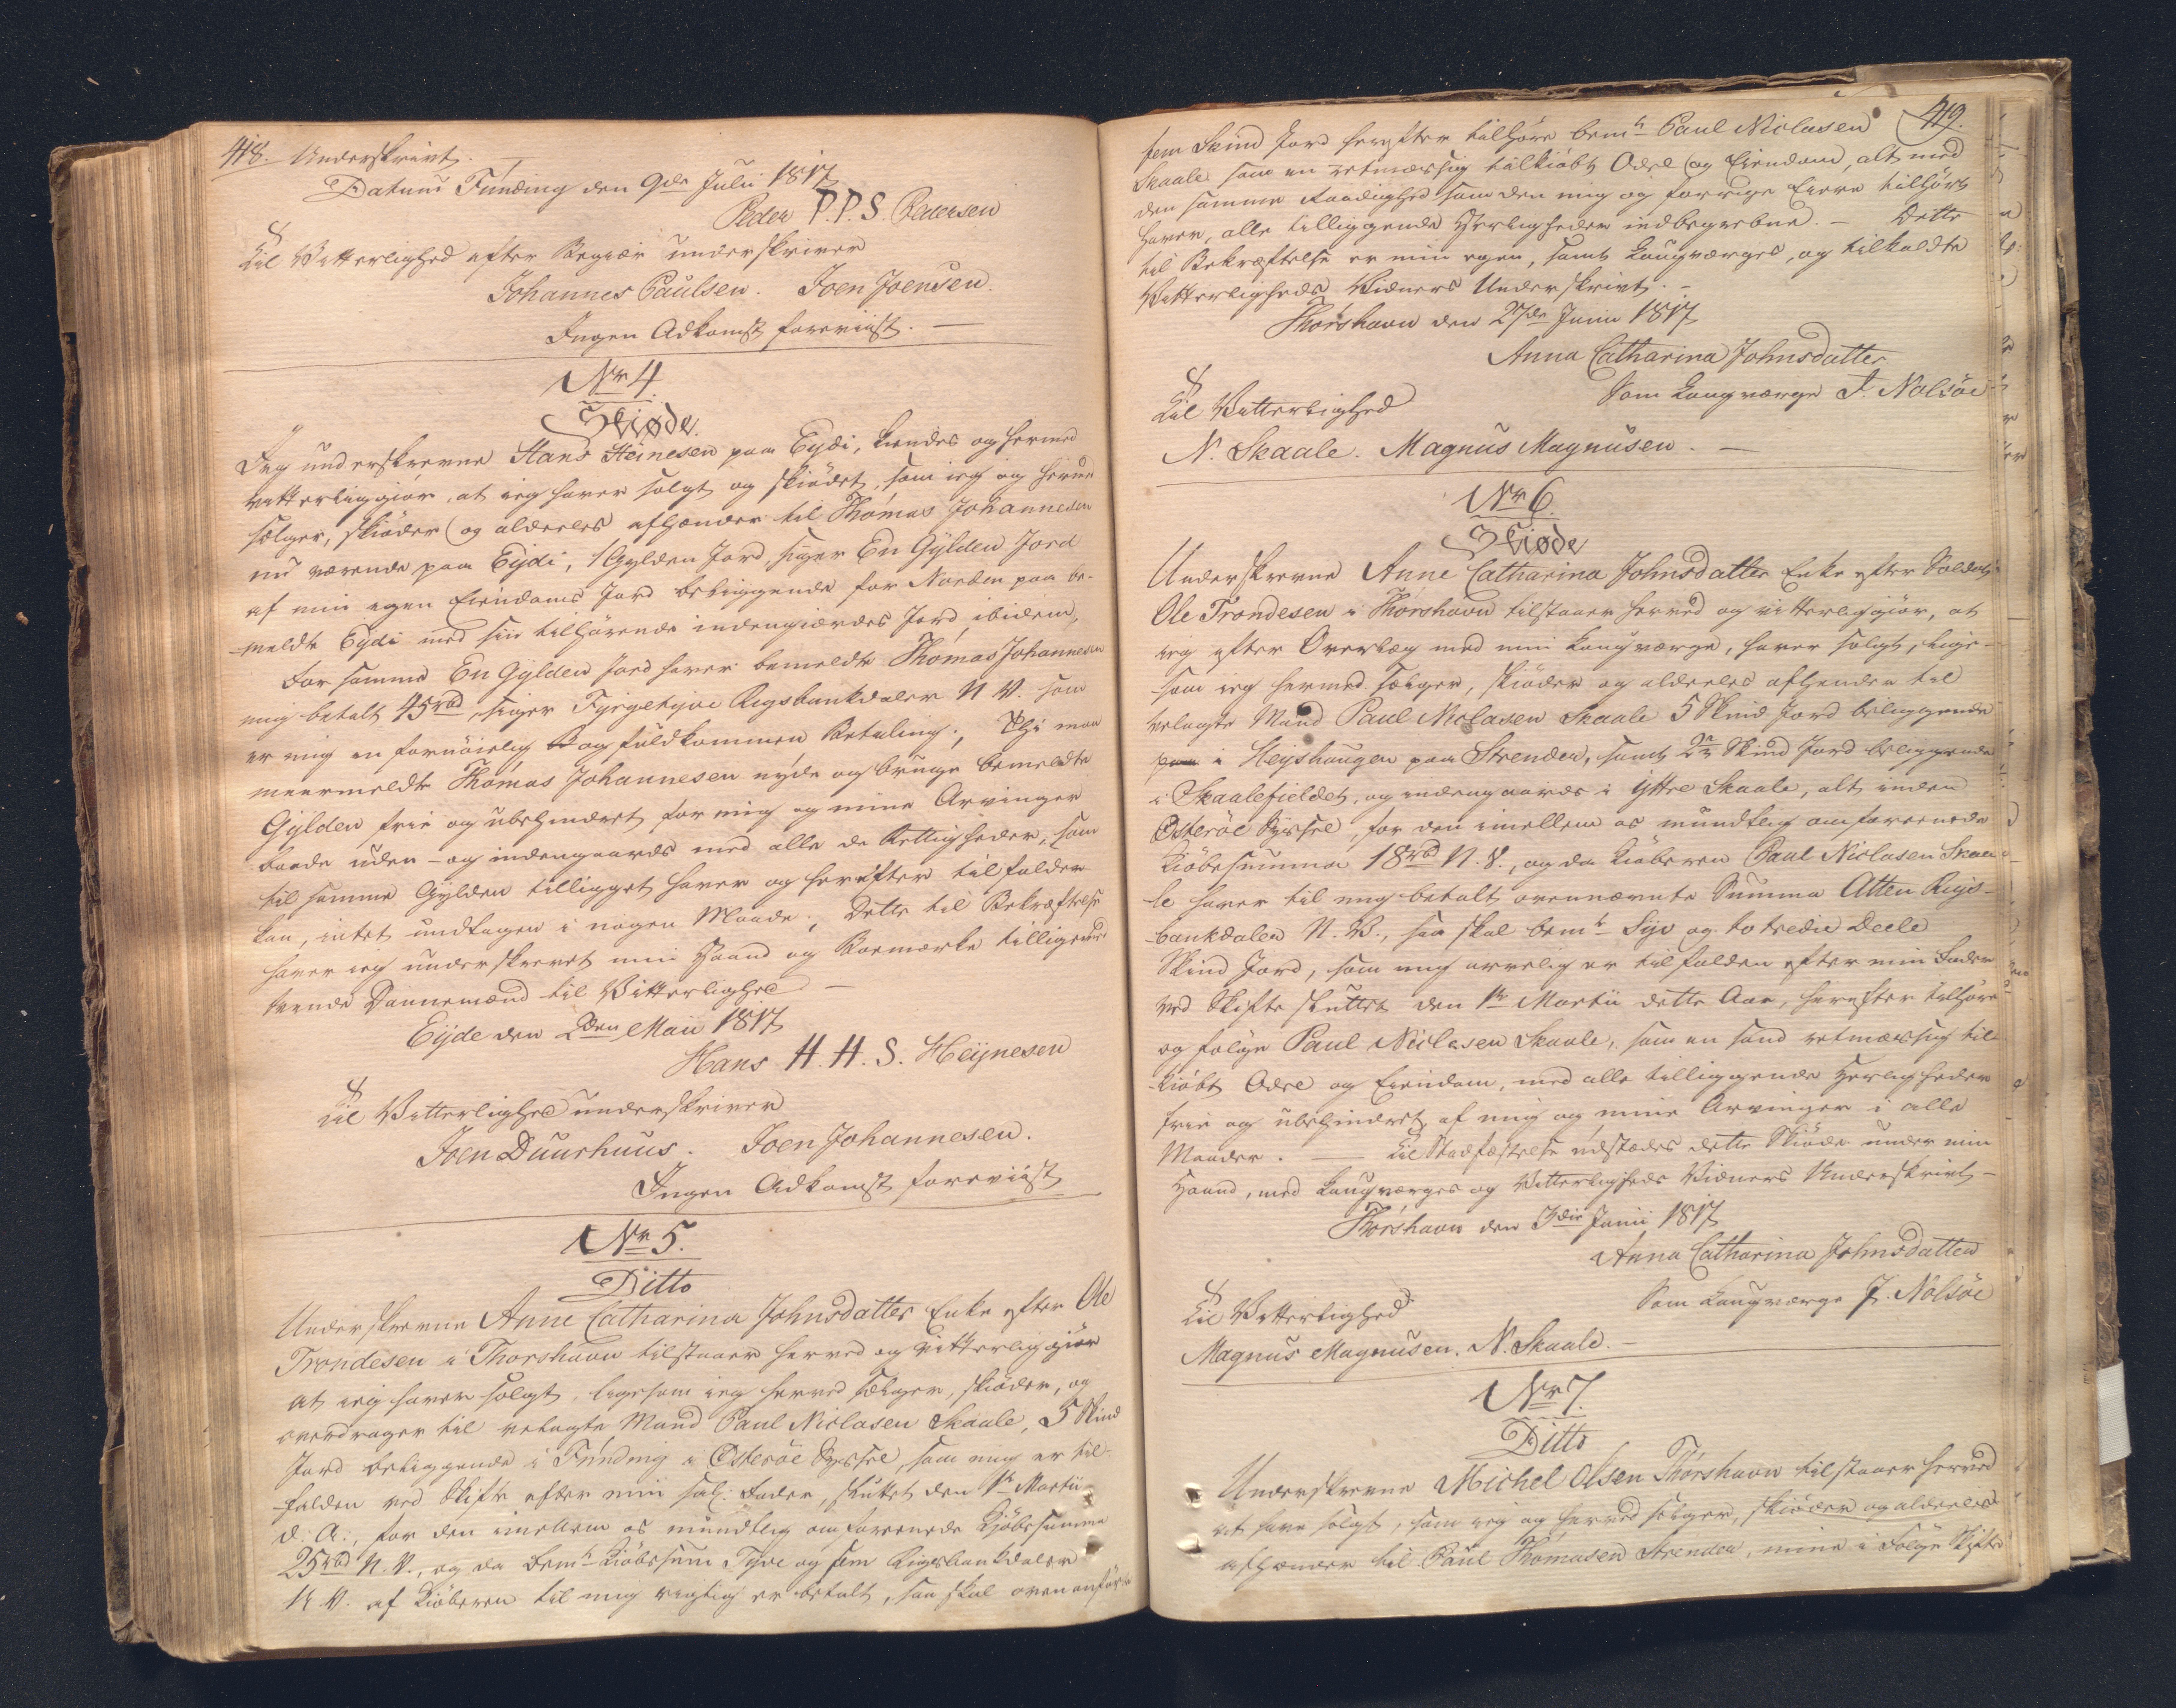 418. Underskrivt. —
Datum Funding den 9de Julii 1817
Peder P.P.S. Pedersen
Til Vitterlighed efter Begiær underskriver
Johannes Paulsen. Joen Joensen.
Ingen Adkomst foreviist. —
Nr 4.
Skiøde.
Jeg underskrevne Hans Heinesen paa Eydi, kiendes og hermed
vitterliggiør, at ieg haver solgt og skiødet, som ieg og herved
sælger, skiøder og aldeeles afhænder til Thomas Johannesen
nu værende paa Eydi, 1 Gylden Jord, siger En Gylden Jord
af min egen Eiendoms Jord beliggende for Norden paa be-
meldte Eydi med sin tilhørende indengierdes Jord ibidem,
For samme En Gylden Jord haver bemeldte Thomas Johannesen
mig betalt 45rbd, siger Fyrgetyve Rigsbankdaler N. V. som
er mig en fornøielig og fuldkommen Betaling., Thi maa
meermeldte Thomas Johannesen nyde og bruge bemeldte
Gylden frie og ubehindret for mig og mine Arvinger
baade uden- og indengaards med alle de Rettigheder, som
til samme Gylden tilligget haver og herefter tilfalde
kan, intet undtagen i nogen Maade., Dette til Bekræftelse
haver ieg underskrevet min Haand og Boemærke tilligemed
tvende Dannemænd til Vitterlighed —
Eyde den 2den Maii 1817
Hans H.H.S. Heynesen
Til Vitterlighed underskriver
Joen Duurhuus. Joen Johannesen.
Ingen Adkomst foreviist
Nr 5.
Ditto
Underskrevne Anne Catharina Johnsdatter Enke efter Ole
Trondesen i Thorshavn tilstaaer herved og vitterliggiør
at ieg haver solgt, ligesom ieg herved sælger, skiøder, og
overdrager til velagte Mand Paul Niclasen Skaale, 5 Skind
Jord beliggende i Funding i Österöe Syssel, som mig er til-
falden ved Skifte efter min sal: Fader, sluttet den 1te Martii
d: A:, for den imellem os mundtlig omforeenede Kjøbesumma
25rbd N. V., og da bemte Kiøbesum Tyve og fem Rigsbankdaler
N V. af Kiøberen til mig rigtig er betalt, saa skal ovenanførte
419.
fem Skind Jord herefter tilhøre bemte Paul Niclasen
Skaale som en retmæssig tilkiøbt Odel og Eiendom, alt med
den samme Raadighed som den mig og forrige Eiere tilhørt
haver, alle tilliggende Herligheder indbegrebne. — Dette
til Bekræftelse er min egen, samt Laugværges, og tilkaldte
Vitterligheds Vidners Underskrivt. —
Thorshavn den 27de Junii 1817
Anna Catharina Johnsdatter
Som Laugværge J. Nolsöe
Til Vitterlighed
N. Skaale. Magnus Magnusen. —
Nr 6.
Skiøde
Underskrevne Anne Catharina Johnsdatter Enke efter Soldat
Ole Trondesen i Thorshavn tilstaaer herved og vitterliggiør, at
ieg efter Overlæg med min Laugværge, haver solgt, lige-
som ieg hermed sælger, skiøder og aldeeles afhender til
velagte Mand Paul Niclasen Skaale 5 Skind Jord beliggende
i Heyshaugen paa Strenden, samt 2 2/3 Skind Jord beliggende
i Skaalefieldet, og indengaards i yttre Skaale, alt inden
Österöe Syssel, for den imellem os mundtlig omforeenede
Kiöbesumma 18rbd N. V., og da Kiøberen Paul Niclasen Skaa-
le haver til mig betalt ovennævnte Summa Atten Rigs-
bankdaler N. V., saa skal bemte Syv og to tredie Deele
Skind Jord, som mig arvelig er tilfalden efter min Fader
ved Skifte sluttet den 1te Martii dette Aar, herefter tilhøre
og følge Paul Niclasen Skaale, som en sand retmæssig til-
kiøbt Odel og Eiendom, med alle tilliggende Herligheder
frie og ubehindret af mig og mine Arvinger i alle
Maader. — Til Stadfæstelse udstædes dette Skiøde under min
Haand, med Laugværges og Vitterligheds Vidners Underskrivt —
Thorshavn den 3die Junii 1817
Anna Catharina Johnsdatter
Som Laugværge J. Nolsöe
Til Vitterlighed
Magnus Magnusen. N. Skaale. —
Nr 7.
Ditto
Underskrevne Michel Olsen Thorshavn tilstaaer herved
at have solgt, som ieg og herved sælger, skiøder og aldeeles
afhænder til Paul Thomasen Strender, mine i Følge Skifte